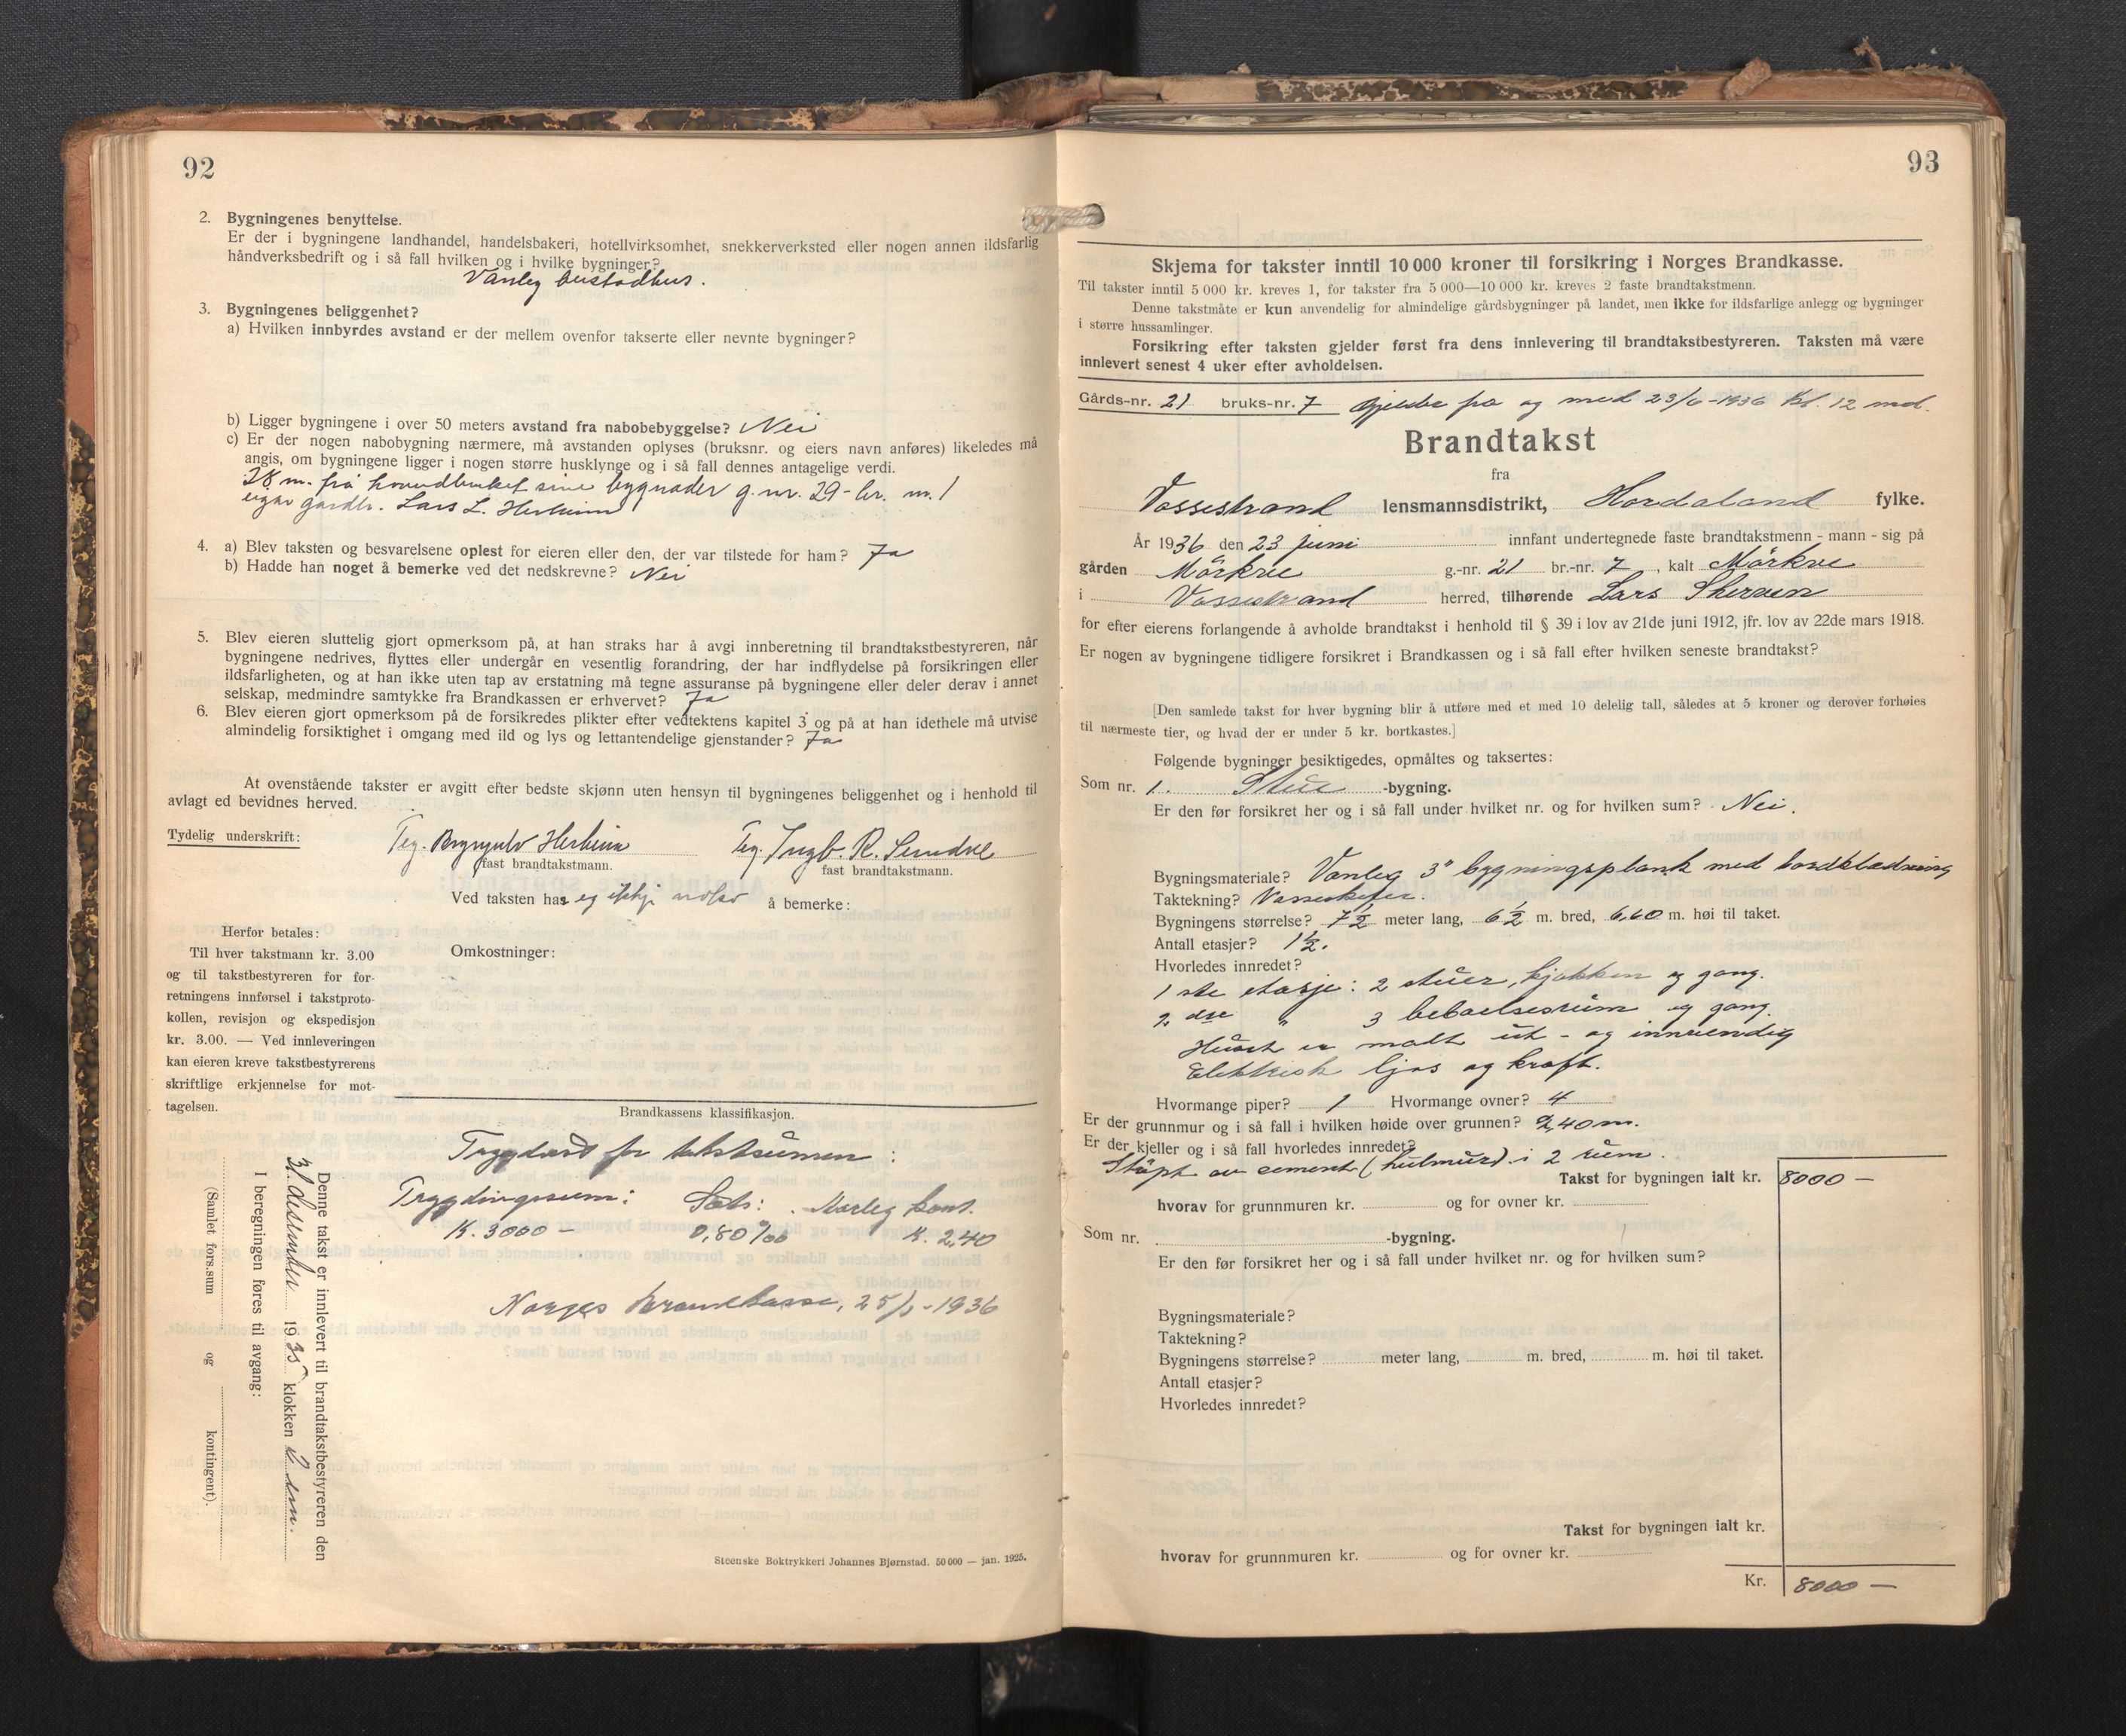 92
2. Bygningenes benyttelse.
Er der i bygningene landhandel, handelsbakeri, hotellvirksomhet, snekkerverksted eller nogen annen ildsfarlig
håndverksbedrift og i så fall hvilken og i hvilke bygninger?
Vanleg bustadhus.
3. Bygningenes beliggenhet?
a) Hvilken innbyrdes avstand er der mellem ovenfor takserte eller nevnte bygninger?
b) Ligger bygningene i over 50 meters avstand fra nabobebyggelse? Nei
c) Er der nogen nabobygning nærmere, må avstanden oplyses (bruksnr. og eiers navn anføres) likeledes må
angis, om bygningene ligger i nogen større husklynge og i så fall dennes antagelige verdi.
38 m. frå hovudbruket sine bygnader g.nr. 29 - br. nr. 1
eigar gardbr. Lars L. Herheim
4. a) Blev taksten og besvarelsene oplest for eieren eller den, der var tilstede for ham? Ja
b) Hadde han noget å bemerke ved det nedskrevne? Nei
5. Blev eieren sluttelig gjort opmerksom på, at han straks har å avgi innberetning til brandtakstbestyreren, når
bygningene nedrives, flyttes eller undergår en vesentlig forandring, der har indflydelse på forsikringen eller
ildsfarligheten, og at han ikke uten tap av erstatning må tegne assuranse på bygningene eller deler derav i annet
selskap, medmindre samtykke fra Brandkassen er erhvervet? Ja
6. Blev eieren gjort opmerksom på de forsikredes plikter efter vedtektens kapitel 3 og på at han idethele må utvise
almindelig forsiktighet i omgang med ild og lys og lettantendelige gjenstander? Ja
At ovenstående takster er avgitt efter bedste skjønn uten hensyn til bygningenes beliggenhet og i henhold til
avlagt ed bevidnes herved.
Tydelig underskrift: Teg. Brynjulv Herheim Teg. Ingb. R. Sundve
fast brandtakstmann. fast brandtakstmann.
Ved taksten har eg ikkje noko å bemerke:
Herfor betales:
Til hver takstmann kr. 3.00
og til takstbestyreren for for-
retningens innførsel i takstproto-
kollen, revisjon og ekspedisjon
kr. 3.00. — Ved innleveringen
kan eieren kreve takstbestyrerens
skriftlige erkjennelse for mot-
tagelsen.
Omkostninger:
Brandkassens klassifikasjon.
Tryggingssum: Sats: Aarleg kont.
K. 3000 - 0,80 ‰ K. 2,40
Norges Brannkasse, 25/ - 1936
Denne takst er innlevert til brandtakstbestyreren den
31. desember 1935 klokken
I beregningen føres til avgang:
(Samlet fors.sum og kontingent).
Steenske Boktrykkeri Johannes Bjørnstad. 50 000 — jan. 1925.
93
Skjema for takster inntil 10 000 kroner til forsikring i Norges Brandkasse.
Til takster inntil 5 000 kr. kreves 1, for takster fra 5 000—10 000 kr. kreves 2 faste brandtakstmenn.
Denne takstmåte er kun anvendelig for almindelige gårdsbygninger på landet, men ikke for ildsfarlige anlegg og bygninger
i større hussamlinger.
Forsikring efter taksten gjelder først fra dens innlevering til brandtakstbestyreren. Taksten må være
innlevert senest 4 uker efter avholdelsen.
Gårds-nr. 21 bruks-nr. 7 Gjelder fra og med 23/6 - 1936 kl. 12 md.
Brandtakst
fra
Vossestrand lensmannsdistrikt, Hordaland fylke.
År 1936 den 23 juni innfant undertegnede faste brandtakstmenn - mann - sig på
gården Mörkve g.-nr. 21 br.-nr. 7, kalt Mörkve
i Vossestrand herred, tilhørende Lars Skerven
for efter eierens forlangende å avholde brandtakst i henhold til § 39 i lov av 21de juni 1912, jfr. lov av 22de mars 1918.
Er nogen av bygningene tidligere forsikret i Brandkassen og i så fall efter hvilken seneste brandtakst?
[Den samlede takst for hver bygning blir å utføre med et med 10 delelig tall, således at 5 kroner og derover forhøies
til nærmeste tier, og hvad der er under 5 kr. bortkastes.]
Følgende bygninger besiktigedes, opmåltes og taksertes:
Som nr. 1. Stue -bygning.
Er den før forsikret her og i så fall under hvilket nr. og for hvilken sum? Nei.
Bygningsmateriale? Vanleg 3" bygningsplank med bordklædning
Taktekning? Vosseskifer.
Bygningens størrelse? 7½ meter lang, 6½ m. bred, 6,60 m. høi til taket.
Antall etasjer? 1½.
Hvorledes innredet?
1 ste etasje: 2 stuer, kjøkken og gang.
2 dre " 3 beboelsesrum og gang.
Huset er malt ut - og innvendig
Elektrisk ljos og kraft.
Hvormange piper? 1 Hvormange ovner? 4
Er der grunnmur og i så fall i hvilken høide over grunnen? 2,40 m.
Er der kjeller og i så fall hvorledes innredet?
Støpt av cement (hulmur) i 2 rum.
Takst for bygningen ialt kr. 8000 —
hvorav for grunnmuren kr. og for ovner kr.
Som nr. -bygning.
Er den før forsikret her og i så fall under hvilket nr. og for hvilken sum?
Bygningsmateriale?
Taktekning?
Bygningens størrelse? meter lang, m. bred, m. høi til taket.
Antall etasjer?
Hvorledes innredet?
Takst for bygningen ialt kr.
hvorav for grunnmuren kr. og for ovner kr.
Kr. 8000 —